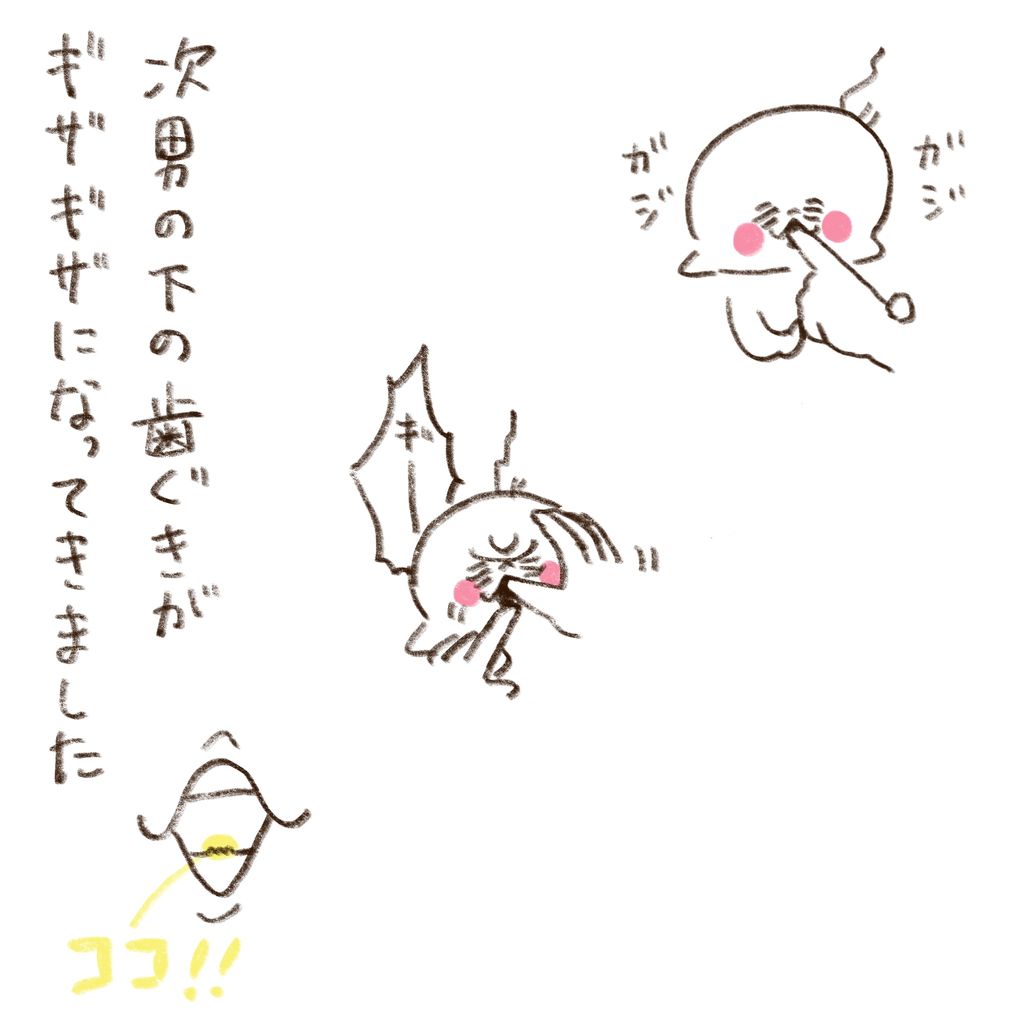 次男の下の歯ぐきが
ギザギザになってきました
ガジ
ガジ
ギー
ココ!!